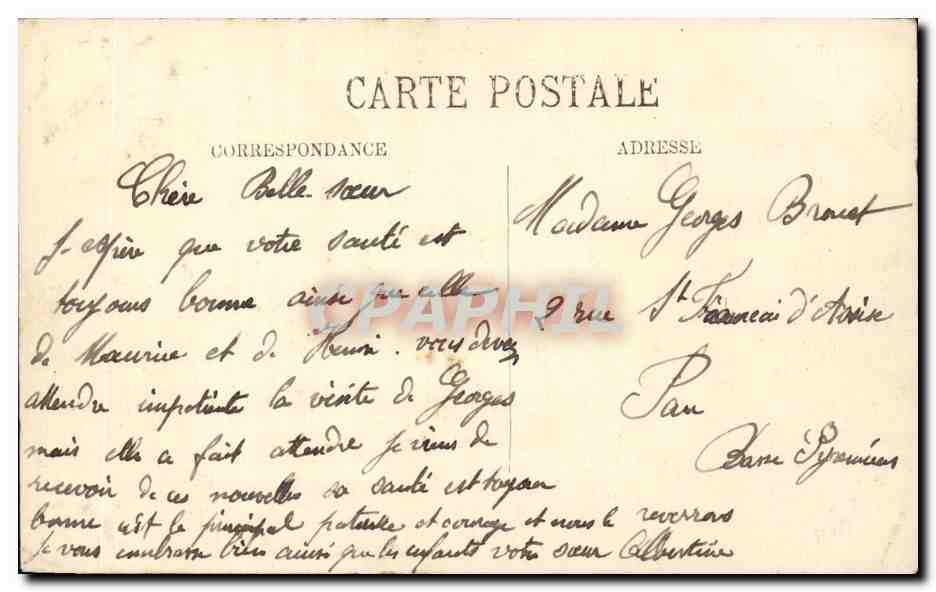 CARTE POSTALE
CORRESPONDANCE
ADRESSE
Chère Belle-sœur
J-espère que votre santé est
toujours bonne ainsi que celle
de Maurice et de Henri. vous devez
attendre impatiente la visite de Georges
mais elle a fait attendre je viens de
recevoir de ces nouvelles sa santé est toujour
bonne c'est le principal et courage et nous le reverrons
je vous embrasse bien ainsi que les enfants votre sœur Albertine
Madame Georges Brouet
2 rue St d'Assise
Pau
Basse Pyrénées
CPAPHIL